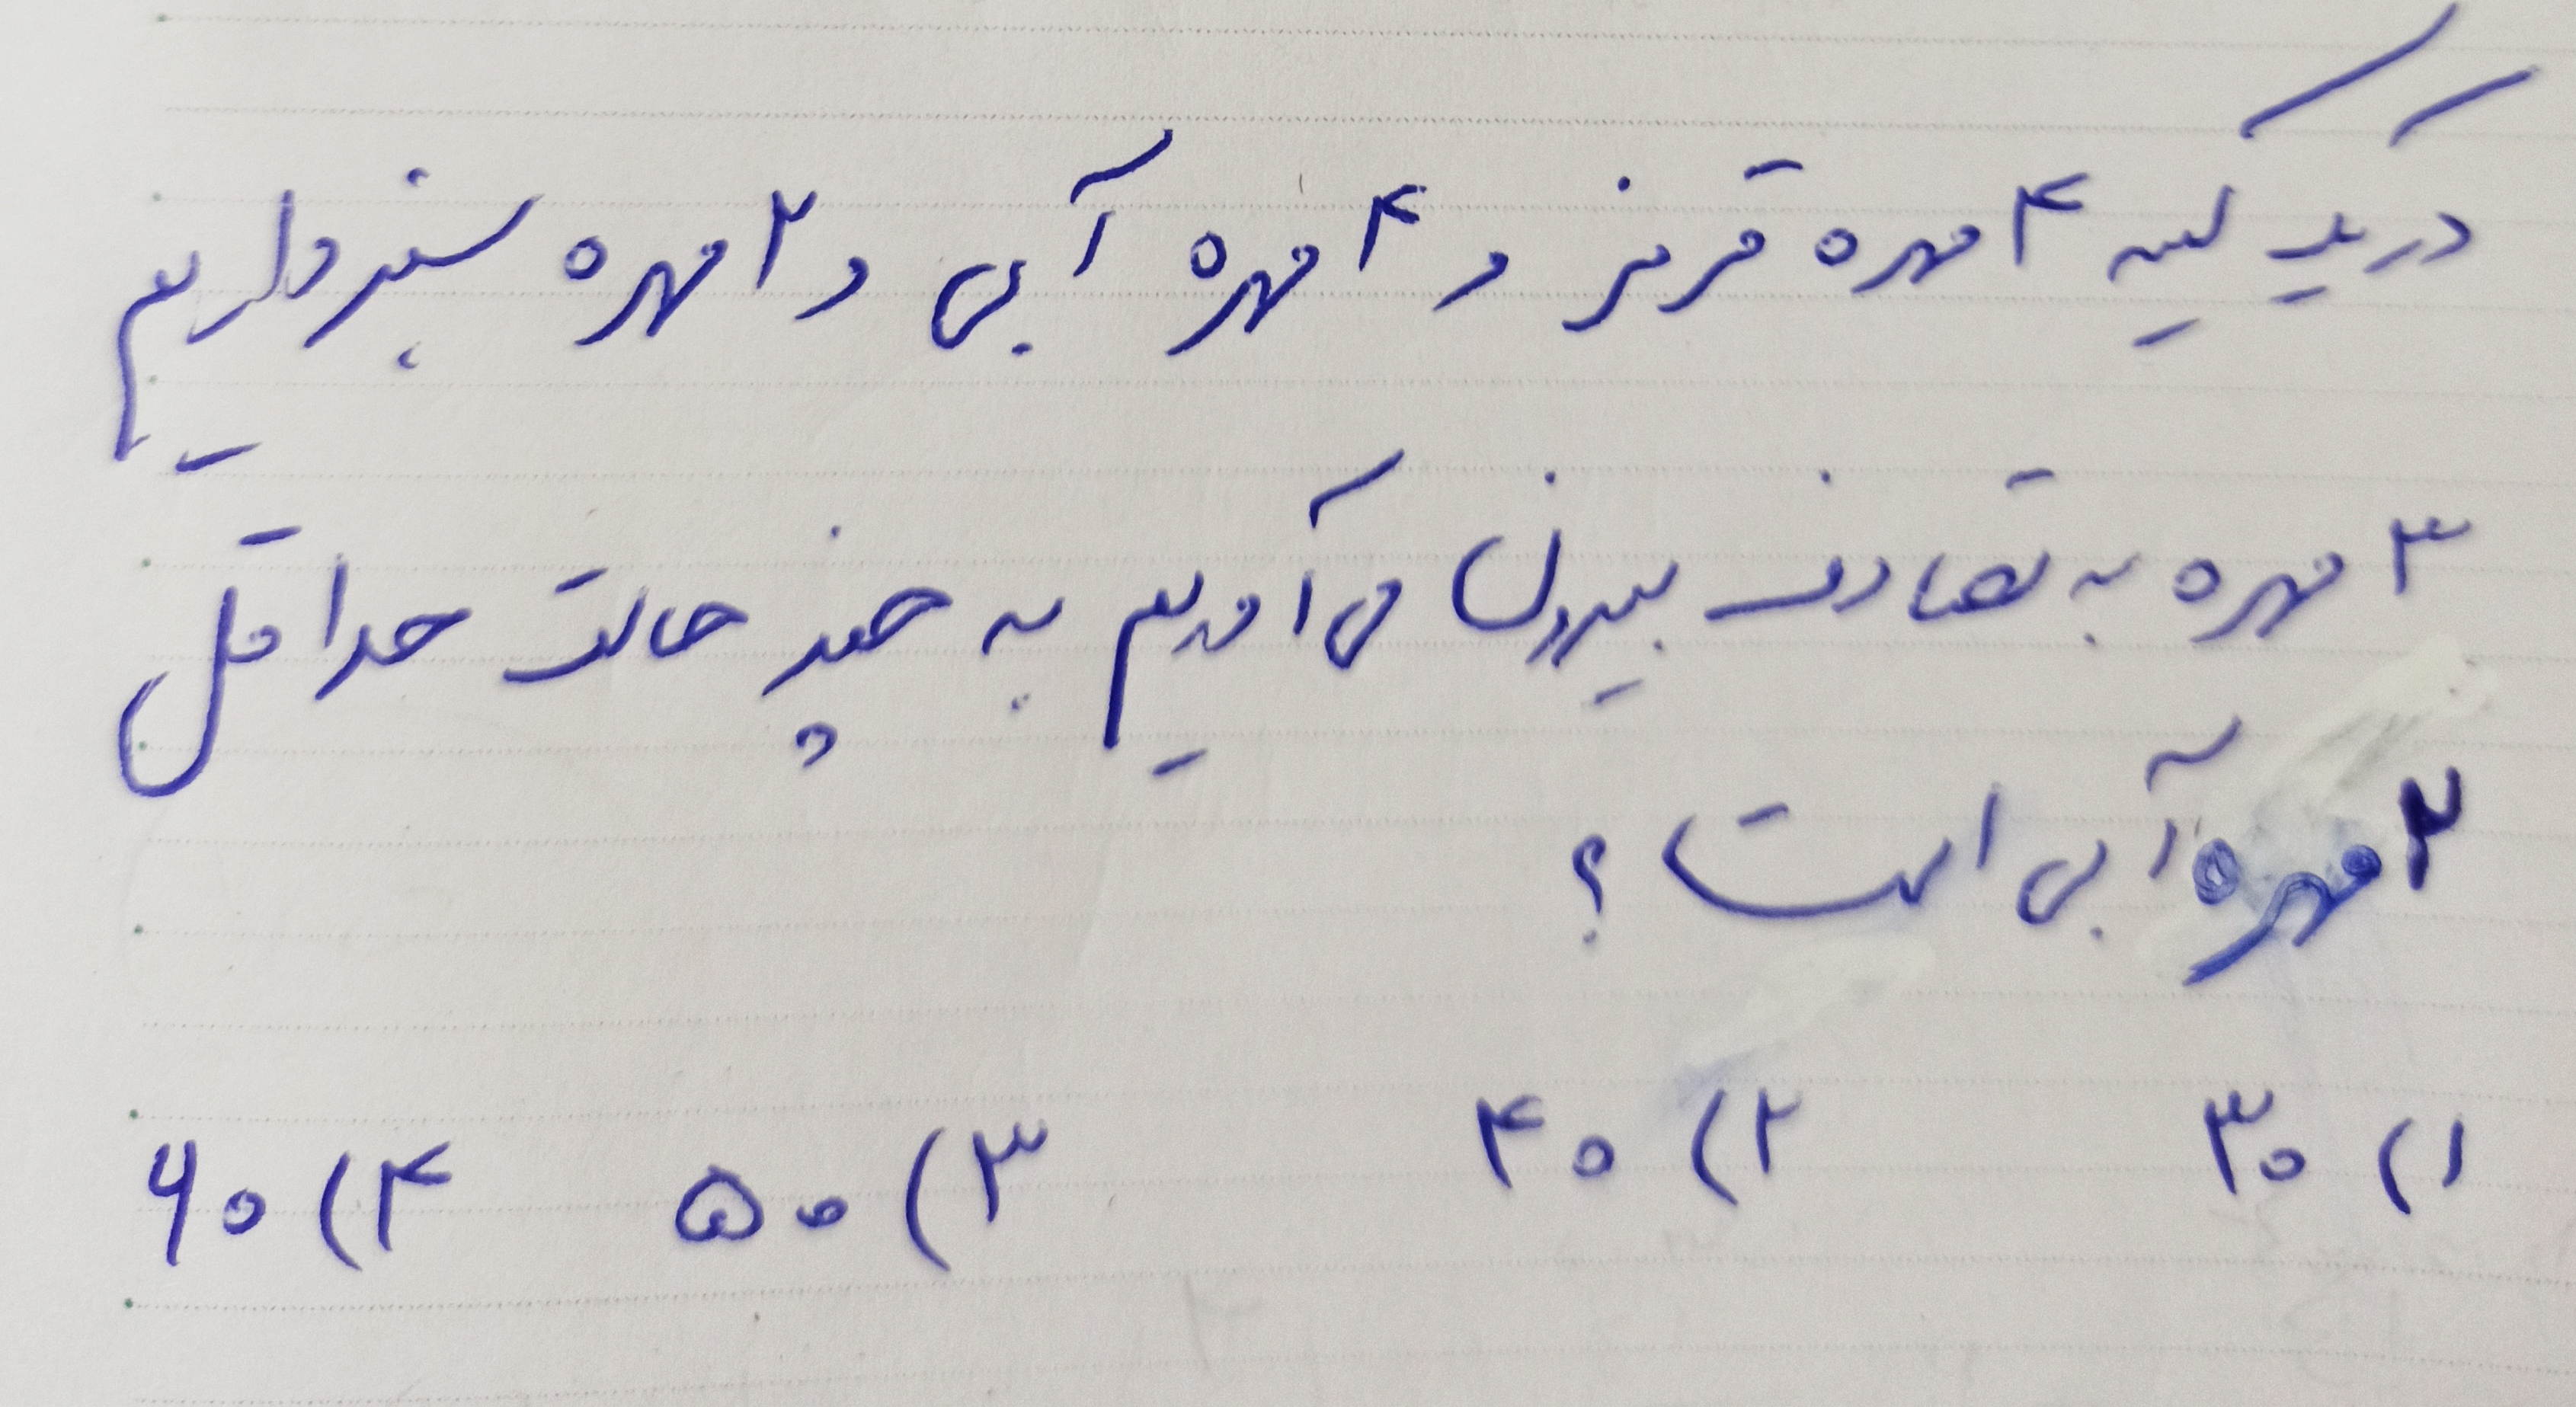 در یک کیسه ۴ مهره قرمز و ۴ مهره آبی و ۲ مهره سبز داریم
۳ مهره به تصادف بیرون می آوریم به چند حالت حداقل
۲ مهره آبی است ؟
۱) ۳۰ ۲) ۴۰ ۳) ۵۰ ۴) ۶۰